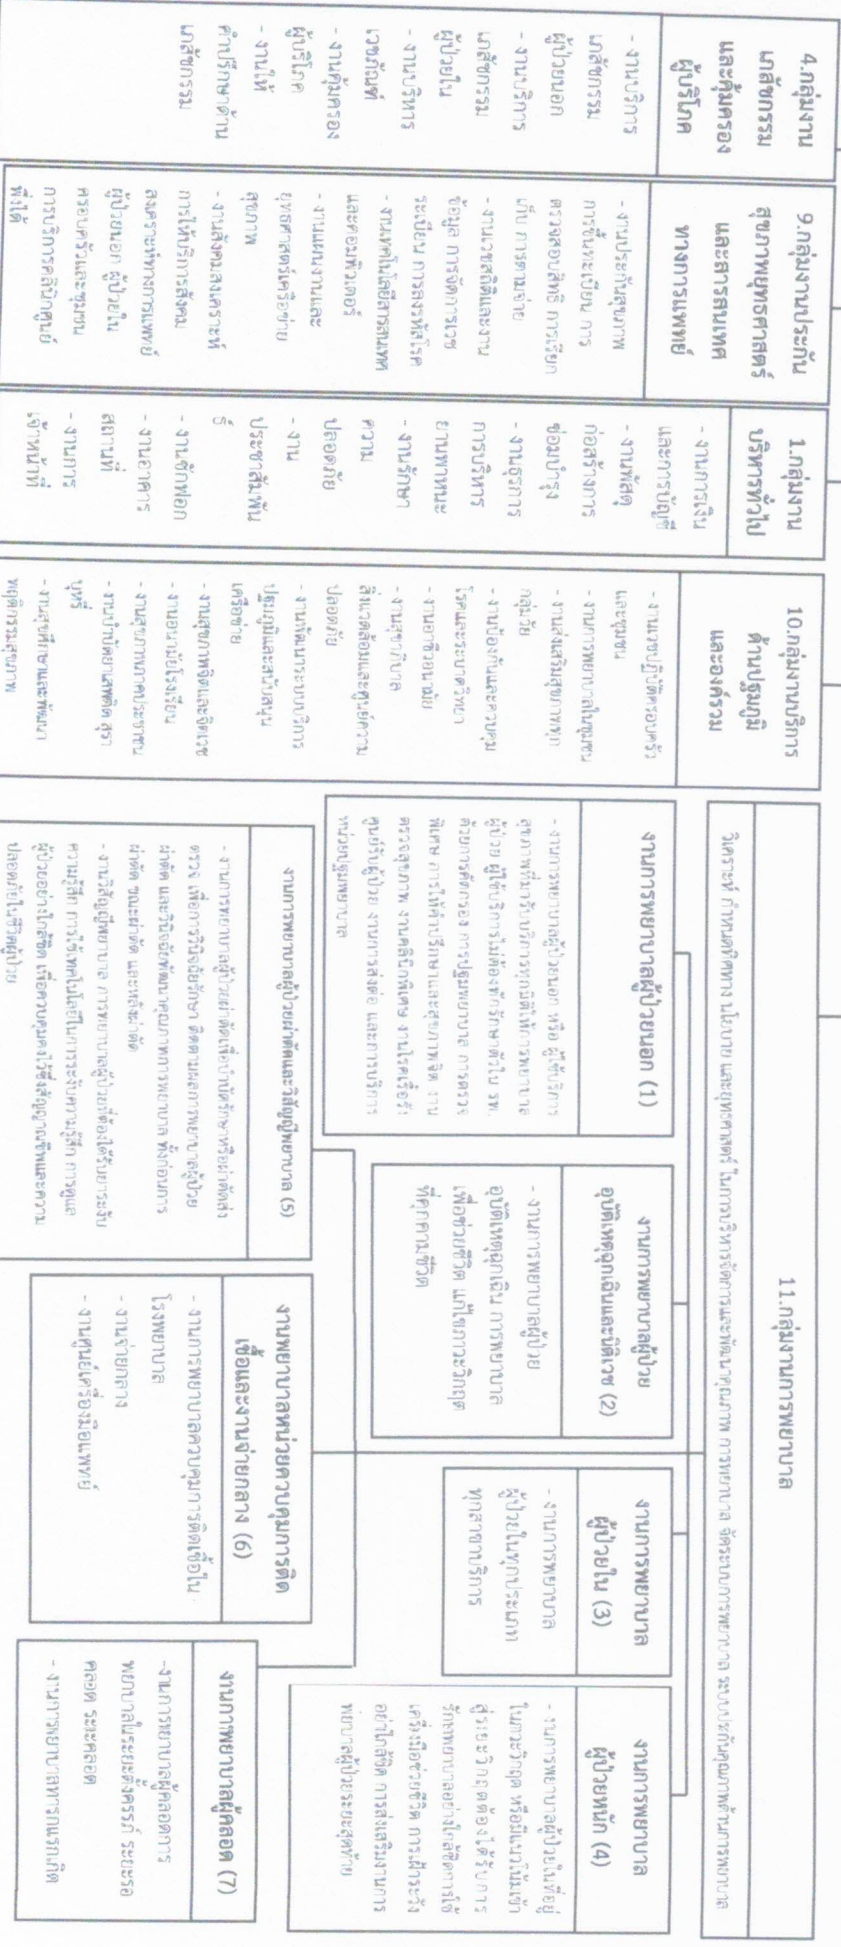 4.กลุ่มงาน
เภสัชกรรม
และคุ้มครอง
ผู้บริโภค
- งานบริการ
เภสัชกรรม
ผู้ป่วยนอก
- งานบริการ
เภสัชกรรม
ผู้ป่วยใน
- งานบริหาร
เวชภัณฑ์
- งานคุ้มครอง
ผู้บริโภค
- งานให้
คำปรึกษาด้าน
เภสัชกรรม
9.กลุ่มงานประกัน
สุขภาพยุทธศาสตร์
และสารสนเทศ
ทางการแพทย์
- งานประกันสุขภาพ
การขึ้นทะเบียน การ
ตรวจสอบสิทธิ การเรียก
เก็บ การตามจ่าย
- งานเวชสถิติและงาน
ข้อมูล การจัดการเวช
ระเบียน การลงรหัสโรค
- งานเทคโนโลยีสารสนเทศ
และคอมพิวเตอร์
- งานแผนงานและ
ยุทธศาสตร์เครือข่าย
สุขภาพ
- งานสังคมสงเคราะห์
การให้บริการสังคม
สงเคราะห์ทางการแพทย์
ผู้ป่วยนอก ผู้ป่วยใน
ครอบครัวและชุมชน
การบริการคลินิกศูนย์
พึ่งได้
1.กลุ่มงาน
บริหารทั่วไป
- งานการเงิน
และการบัญชี
- งานพัสดุ
ก่อสร้างการ
ซ่อมบำรุง
- งานธุรการ
การบริหาร
ยานพาหนะ
- งานรักษา
ความ
ปลอดภัย
- งาน
ประชาสัมพัน
ธ์
- งานซักฟอก
- งานอาคาร
สถานที่
- งานการ
เจ้าหน้าที่
10.กลุ่มงานบริการ
ด้านปฐมภูมิ
และองค์รวม
- งานเวชปฏิบัติครอบครัว
และชุมชน
- งานการพยาบาลในชุมชน
- งานส่งเสริมสุขภาพทุก
กลุ่มวัย
- งานป้องกันและควบคุม
โรคและระบาดวิทยา
- งานอาชีวอนามัย
- งานสุขาภิบาล
สิ่งแวดล้อมและศูนย์ความ
ปลอดภัย
- งานพัฒนาระบบบริการ
ปฐมภูมิและสนับสนุน
เครือข่าย
- งานสุขภาพจิตและจิตเวช
- งานอนามัยโรงเรียน
- งานสุขภาพภาคประชาชน
- งานบำบัดยาเสพติด สุรา
บุหรี่
- งานสุขศึกษาและพัฒนา
พฤติกรรมสุขภาพ
11.กลุ่มงานการพยาบาล
วิเคราะห์ กำหนดทิศทาง นโยบาย และยุทธศาสตร์ ในการบริหารจัดการและพัฒนาคุณภาพ การพยาบาล จัดระบบการพยาบาล ระบบประกันคุณภาพด้านการพยาบาล
งานการพยาบาลผู้ป่วยนอก (1)
- งานการพยาบาลผู้ป่วยนอก หรือ ผู้ใช้บริการ
สุขภาพที่มารับบริการทุกมิติให้การพยาบาล
ผู้ป่วย ผู้ใช้บริการไม่ต้องพักรักษาตัวใน รพ.
ด้วยการคัดกรอง การปฐมพยาบาล การตรวจ
พิเศษ การให้คำปรึกษาและสุขภาพจิต งาน
ตรวจสุขภาพ งานคลินิกพิเศษ งานโรคเรื้อรัง
ศูนย์รับผู้ป่วย งานการส่งต่อ และการบริการ
หน่วยปฐมพยาบาล
งานการพยาบาลผู้ป่วย
อุบัติเหตุฉุกเฉินและนิติเวช (2)
- งานการพยาบาลผู้ป่วย
อุบัติเหตุฉุกเฉิน การพยาบาล
เพื่อช่วยชีวิต แก้ไขภาวะวิกฤต
ที่คุกคามชีวิต
งานการพยาบาล
ผู้ป่วยใน (3)
- งานการพยาบาล
ผู้ป่วยในทุกประเภท
ทุกสาขาบริการ
งานการพยาบาล
ผู้ป่วยหนัก (4)
- งานการพยาบาลผู้ป่วยในที่อยู่
ในภาวะวิกฤต หรือมีแนวโน้มเข้า
สู่ระยะวิกฤตต้องได้รับการ
รักษาพยาบาลอย่างใกล้ชิดการใช้
เครื่องมือช่วยชีวิต การเฝ้าระวัง
อย่างใกล้ชิด การส่งเสริมงานการ
พยาบาลผู้ป่วยระยะสุดท้าย
งานการพยาบาลผู้ป่วยผ่าตัดและวิสัญญีพยาบาล (5)
- งานการพยาบาลผู้ป่วยผ่าตัดเพื่อบำบัดรักษาหรือผ่าตัดส่ง
ตรวจ เพื่อการวินิจฉัยรักษา ติดตามผลการพยาบาลผู้ป่วย
ผ่าตัด และวินิจฉัยพัฒนาคุณภาพการพยาบาล ทั้งก่อนการ
ผ่าตัด ขณะผ่าตัด และหลังผ่าตัด
- งานวิสัญญีพยาบาล การพยาบาลผู้ป่วยที่ต้องได้รับยาระงับ
ความรู้สึก การใช้เทคโนโลยีในการระงับความรู้สึก การดูแล
ผู้ป่วยอย่างใกล้ชิด เพื่อควบคุมคงไว้ซึ่งสัญญาณชีพและความ
ปลอดภัยในชีวิตผู้ป่วย
งานพยาบาลหน่วยควบคุมการติด
เชื้อและงานจ่ายกลาง (6)
- งานการพยาบาลควบคุมการติดเชื้อใน
โรงพยาบาล
- งานจ่ายกลาง
- งานศูนย์เครื่องมือแพทย์
งานการพยาบาลผู้คลอด (7)
- งานการพยาบาลผู้คลอดการ
พยาบาลในระยะตั้งครรภ์ ระยะรอ
คลอด ระยะคลอด
- งานการพยาบาลทารกแรกเกิด